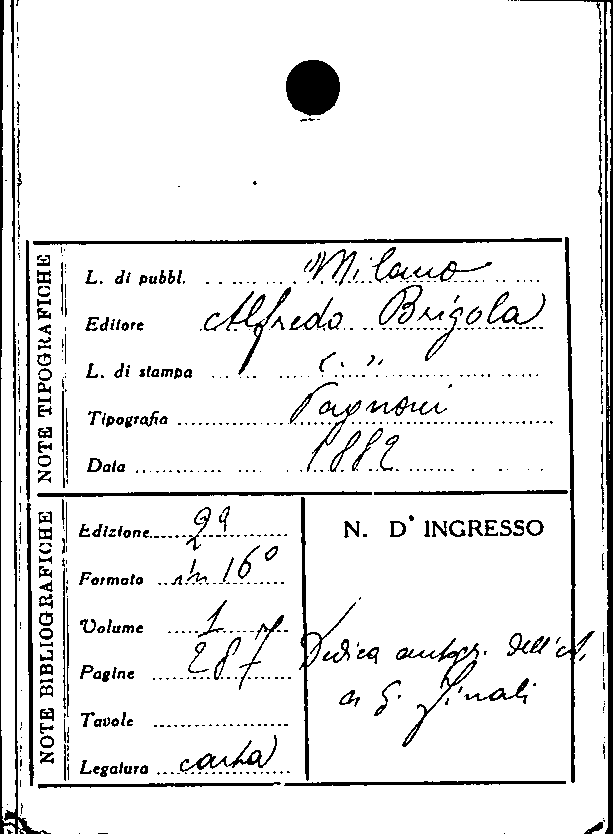 NOTE TIPOGRAFICHE
L. di pubbl. Milano
Editore Alfredo Brigola
L. di stampa (. ")
Tipografia Pagnoni
Data 1882
NOTE BIBLIOGRAFICHE
Edizione 2ª
Formato in 16°
Volume 1
Pagine 287
Tavole
Legatura carta
N. D'INGRESSO
Dedica autogr. dell'A.
a G.